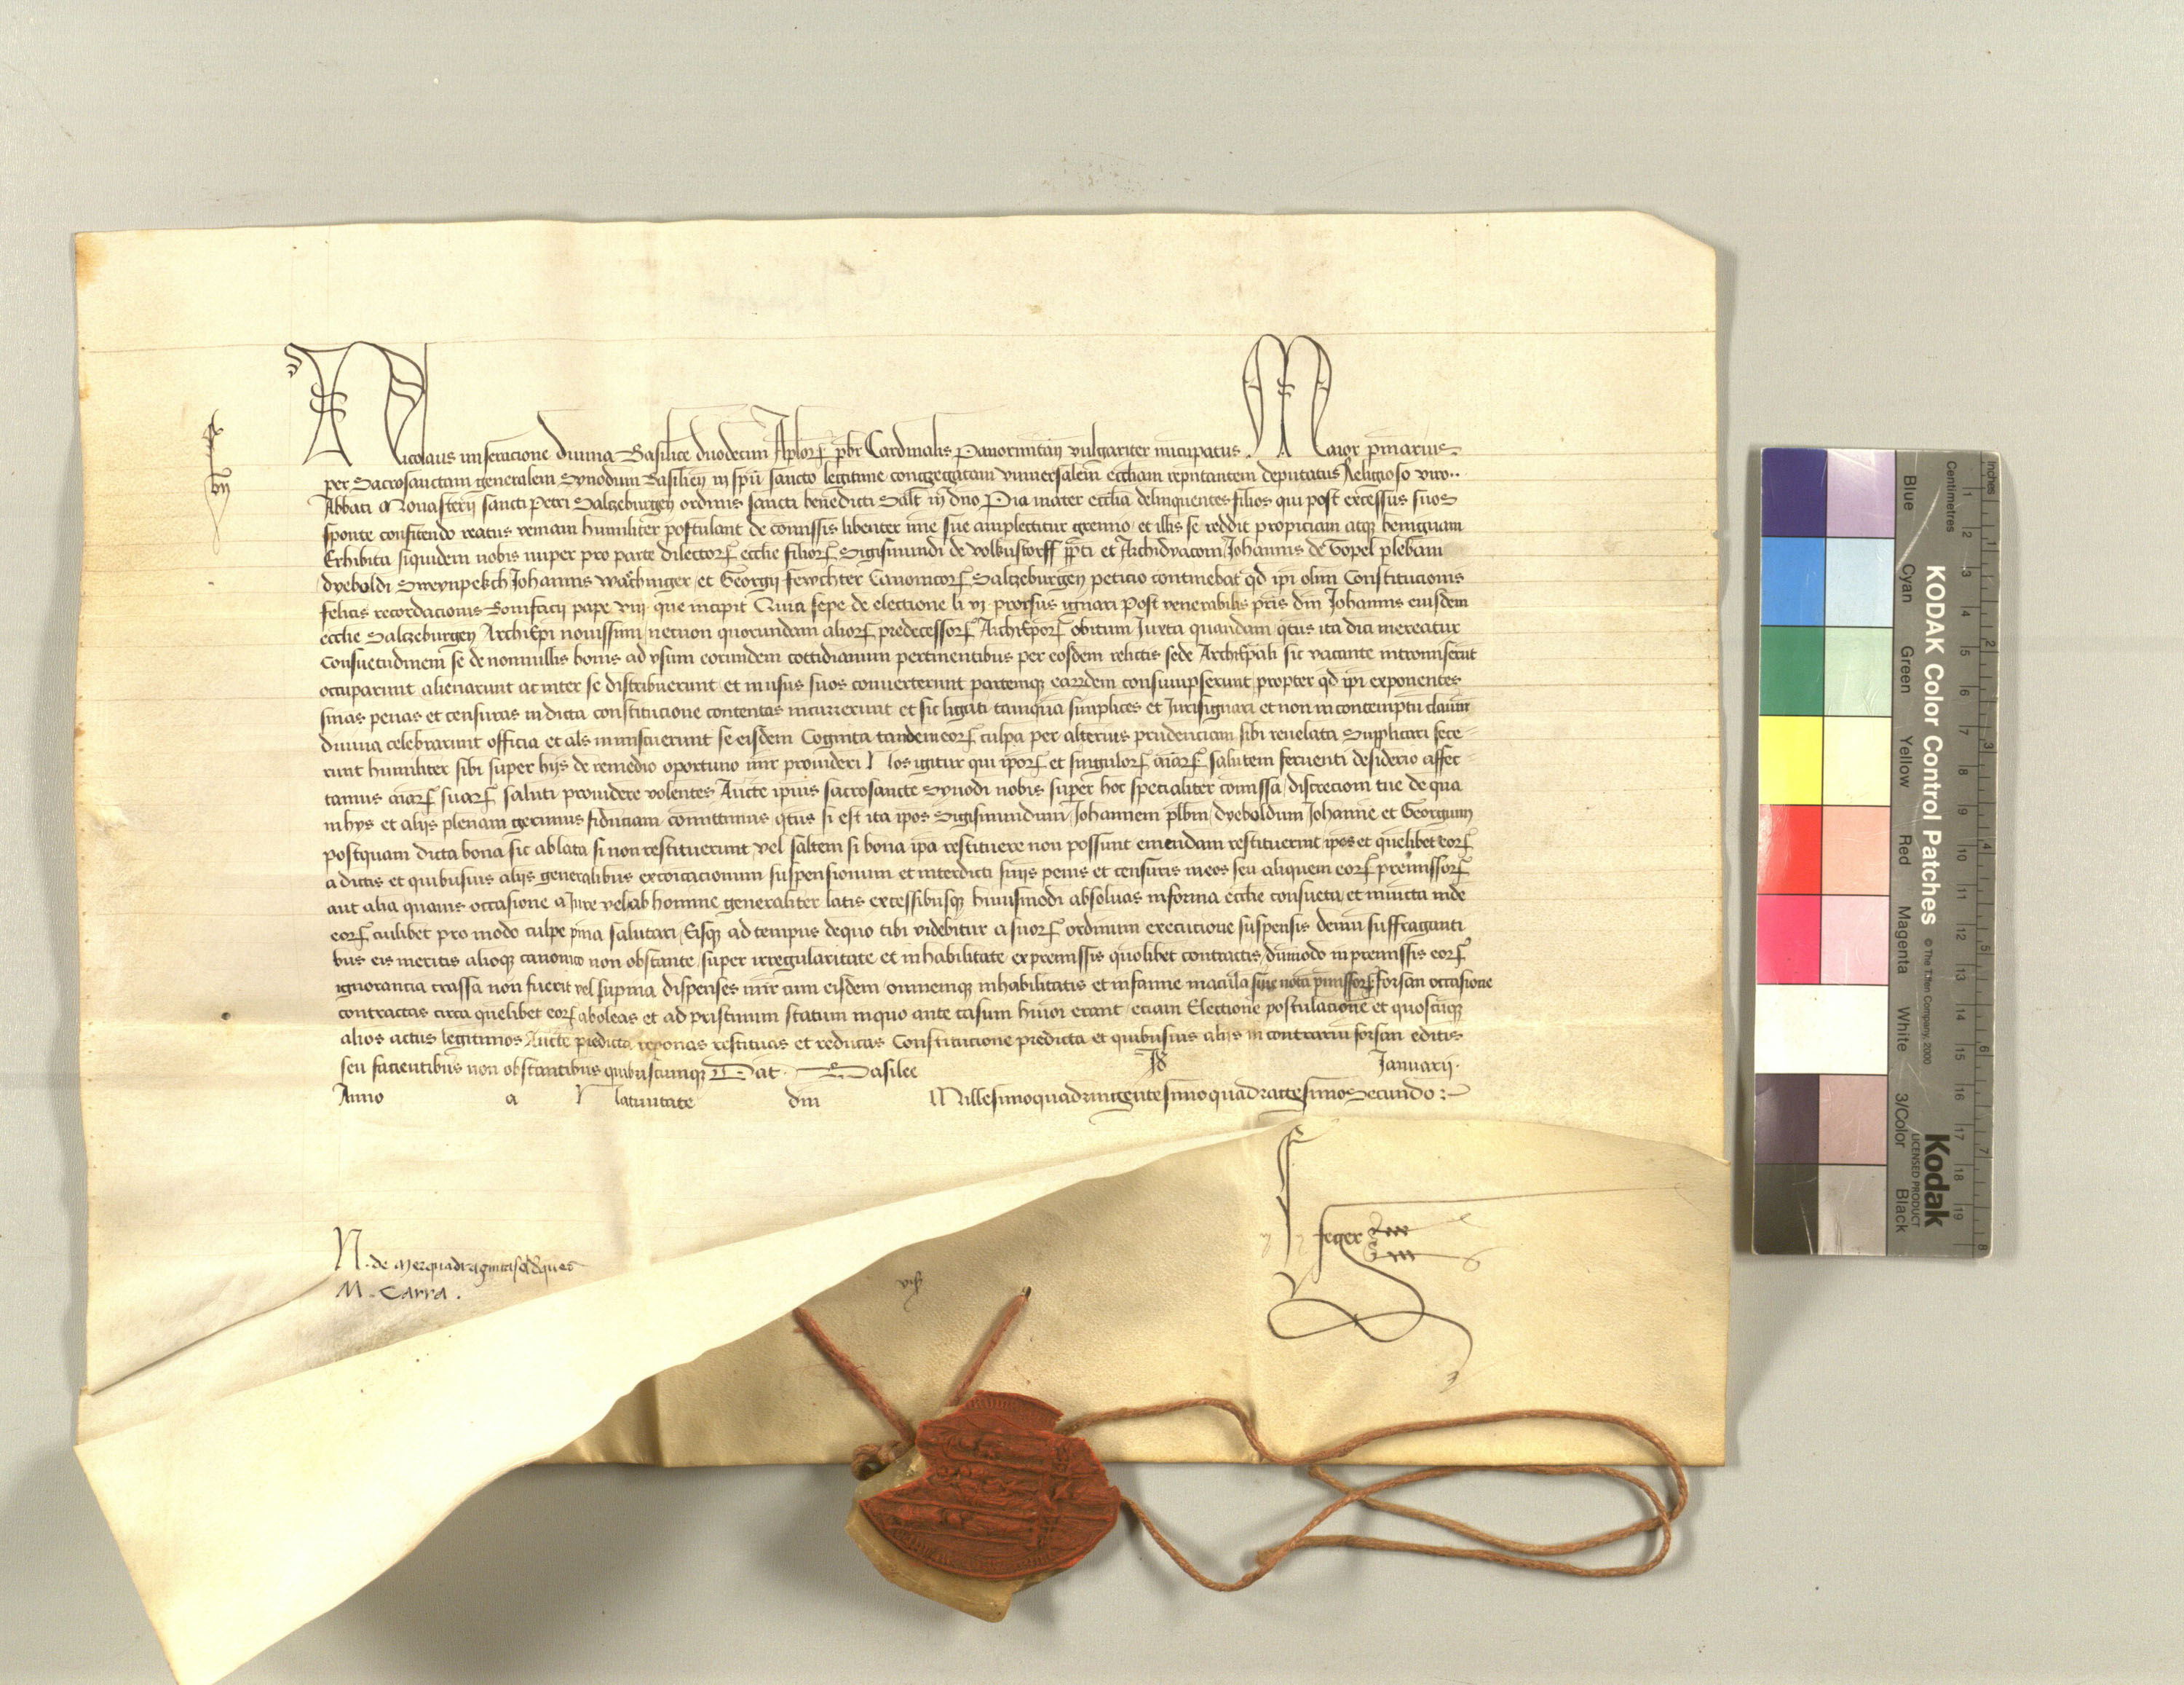 Nicolaus miseracione divina Basilice duodecim Aplorꝝ pbr Cardinalis Panormitan vulgariter nucupatus. Maior pniarius
per Sacrosanctam generalem Synodum Basilien in spu sancto legitime congregatam vniuersalem eccliam reputantem deputatus Religioso viro..
Abbati Monasterij sancti Petri Saltzeburgen ordinis sancti benedicti Salt in dno Pia mater ecclia delinquentes filios qui post excessus suos
sponte confitendo reatus veniam humiliter postulant de comissis libenter ime sue amplectitur gremio et illis se reddit propiciam atqꝫ benignam
Exhibita siquidem nobis nuper pro parte dilectorꝝ ecclie filiorꝝ Sigismundi de Volkenstorff ppti et Archidyaconi Johannis de Topel plebani
dyeboldi Sweynpekch Johannis Waschinger et Georgij Fewchter Canonicorꝝ Saltzeburgen peticio continebat qd ipi olim Constitucionis
felicis recordacionis Bonifacij pape viij que incipit Quia sepe de electione li vj prorsus ignari Post venerabilis pris dni Johannis eiusdem
ecclie Saltzeburgen ArchiEpi nouissimi necnon quorundam aliorꝝ predecessorꝝ ArchiEporꝝ obitum Iuxta quandam qtus ita dici mereatur
Consuetudinem se de nonnullis bonis ad vsum eorundem cottidianum pertinentibus per eosdem relictis sede ArchiEpali sic vacante intromiserut
occuparunt alienarunt ac inter se distribuerunt et in usus suos conuerterunt partemqꝫ earrdem consumpserunt propter qd ipi exponentes
snias penas et censuras in dicta constitucione contentas incurrerunt et sic ligati tamqua simplices et Jurisignari et non in contemptu clauiu
diuina celebrarunt officia et als inmiscuerunt se eisdem Cognita tandem eorꝝ culpa per alterius prudenciam sibi reuelata Supplicari fece-
runt humiliter sibi super hijs de remedio oportuno mir prouideri Nos igitur qui iporꝝ et singulorꝝ aiarꝝ salutem feruenti desiderio affec-
tamus aiarꝝ suarꝝ saluti prouidere volentes Aucte ipius sacrosancte Synodi nobis super hoc specialiter comissa discrecioni tue de qua
in hys et alijs plenam gerimus fiduciam comittimus qtus si est ita ipos Sigismundum Johannem plbm dyeboldum Johanne et Georgium
postquam dicta bona sic ablata si non restituerunt vel saltem si bona ipa restituere non possunt emendam restituerint ipos et quelibet eorꝝ
a dictis et quibusuis alijs generalibus excoicacionum suspensionum et interdicti snijs penis et censuris in eos seu aliquem eorꝝ premissorꝝ
aut alia quauis occasione a Jure vel ab homine generaliter latis excessibusqꝫ huiusmodi absoluas in forma ecclie consueta et iniucta inde
eorꝝ cuilibet pro modo culpe pnia salutari Eisqꝫ ad tempus de quo tibi videbitur a suorꝝ ordinum executione suspensis demu suffraganti
bus eis meritis alioqꝫ canonico non obstante super irregularitate et inhabilitate ex premissis quolibet contractis dumodo in premissis eorꝝ
ignorancia crassa non fuerit vel supina dispenses mir cum eisdem omnemqꝫ inhabilitatis et infamie macula siue nota pmissorꝝ forsan occasione
contractas circa quelibet eorꝝ aboleas et ad pristinum statum in quo ante casum huioi erant eciam Electione postulacione et quoscuqꝫ
alios actus legitimos Aucte predicta reponas restituas et reducas Constitucione predicta et quibusuis alijs in contrariu forsan editis
seu facientibus non obstantibus quibuscumqꝫ Dat Basilee Id Januarij.
Anno a Natiuitate dni Millesimoquadringentesimoquadragesimosecundo :-
M. Carra.
KODAK Color Control Patches
© The Tiffen Company, 2000
Kodak
LICENSED PRODUCT
Blue Cyan Green Yellow Red Magenta White 3/Color Black
Inches 1 2 3 4 5 6 7 8
Centimetres 1 2 3 4 5 6 7 8 9 10 11 12 13 14 15 16 17 18 19